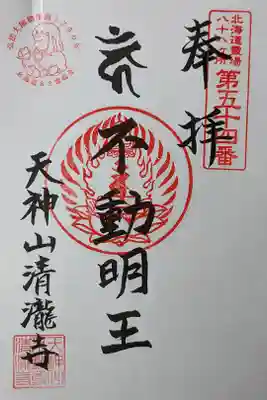 北海道霊場
八十八ヶ所
第五十四番
奉拝
不動明王
天神山清瀧寺